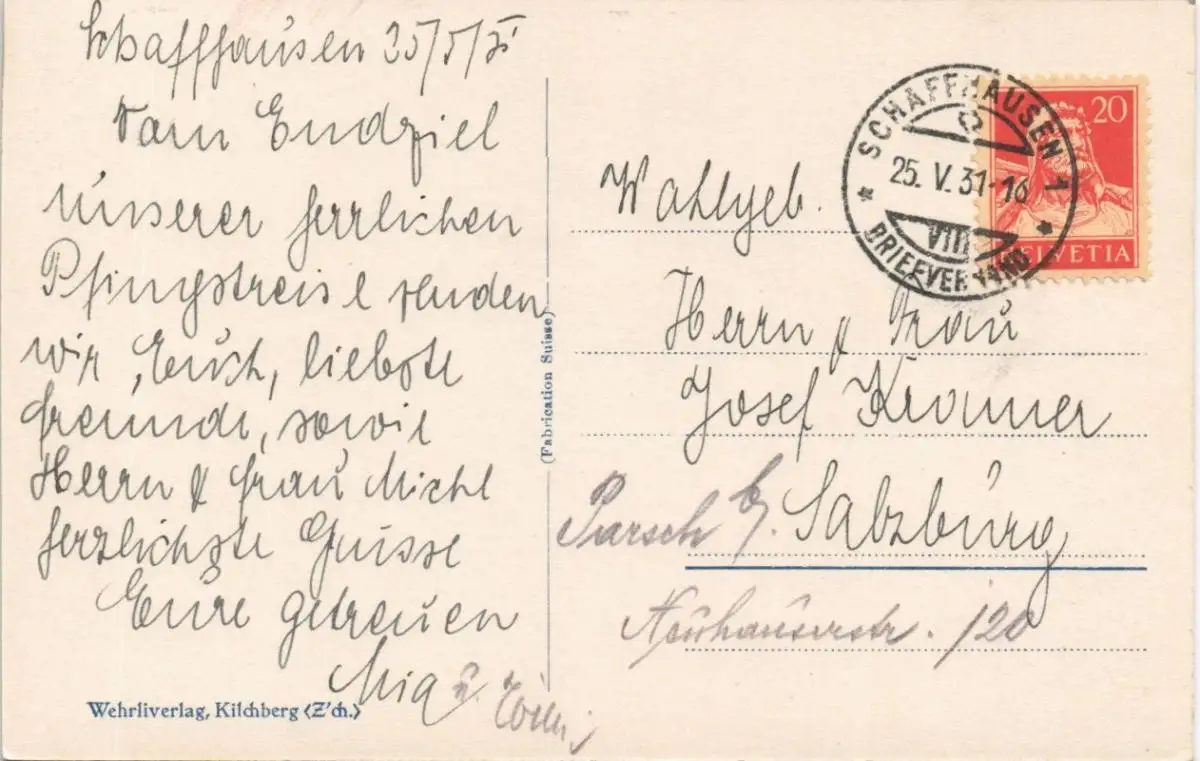 Schaffhausen 25/5/31
Vom Endziel
unserer herrlichen
Pfingstreise senden
wir Euch, liebste
Freunde, sowie
Herrn & Frau Michl
herzlichste Grüsse
Eure getreuen
Mia u.
Wehrliverlag, Kilchberg (Z'ch.)
(Fabrication Suisse)
SCHAFFHAUSEN 1
25. V. 31-16
VIII
BRIEFVERSAND
20
HELVETIA
Wohlgeb.
Herrn & Frau
Josef Kramer
Parsch b/ Salzburg
Neuhauserstr. 120